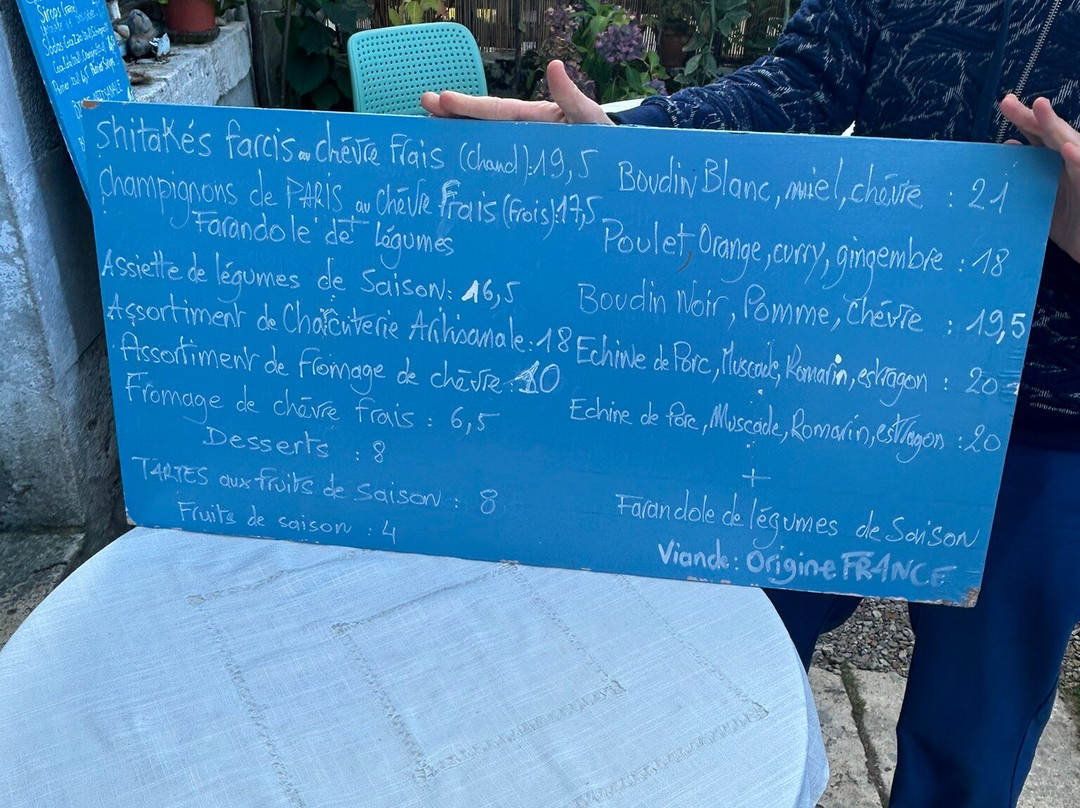 Sirops
Shitakés farcis au chèvre Frais (Chaud): 19,5
Champignons de PARIS au Chèvre Frais (Frois): 17,5
+
Farandole de légumes
Assiette de légumes de Saison: 16,5
Assortiment de Charcuterie Artisanale: 18
Assortiment de fromage de chèvre: 10
Fromage de chèvre frais : 6,5
Desserts : 8
TARTES aux fruits de saison : 8
Fruits de saison : 4
Boudin Blanc, miel, chèvre : 21
Poulet, Orange, curry, gingembre : 18
Boudin Noir, Pomme, Chèvre : 19,5
Echine de Porc, Muscade, Romarin, estragon : 20
Echine de Porc, Muscade, Romarin, estragon : 20
+
Farandole de légumes de Saison
Viande: Origine FRANCE